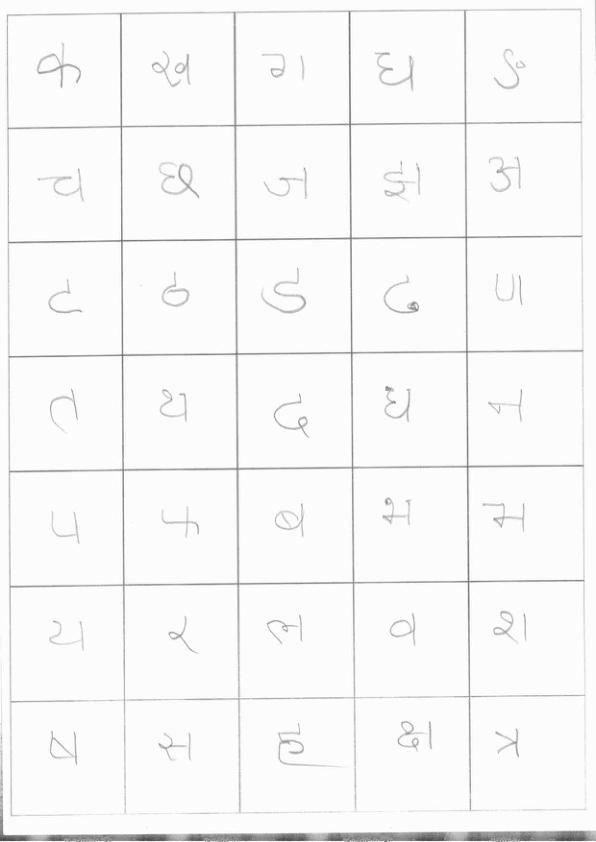 क ख ग घ ङ
च छ ज झ अ
ट ठ ड ढ ण
त थ द ध न
प फ ब भ म
य र ल व श
ष स ह क्ष त्र